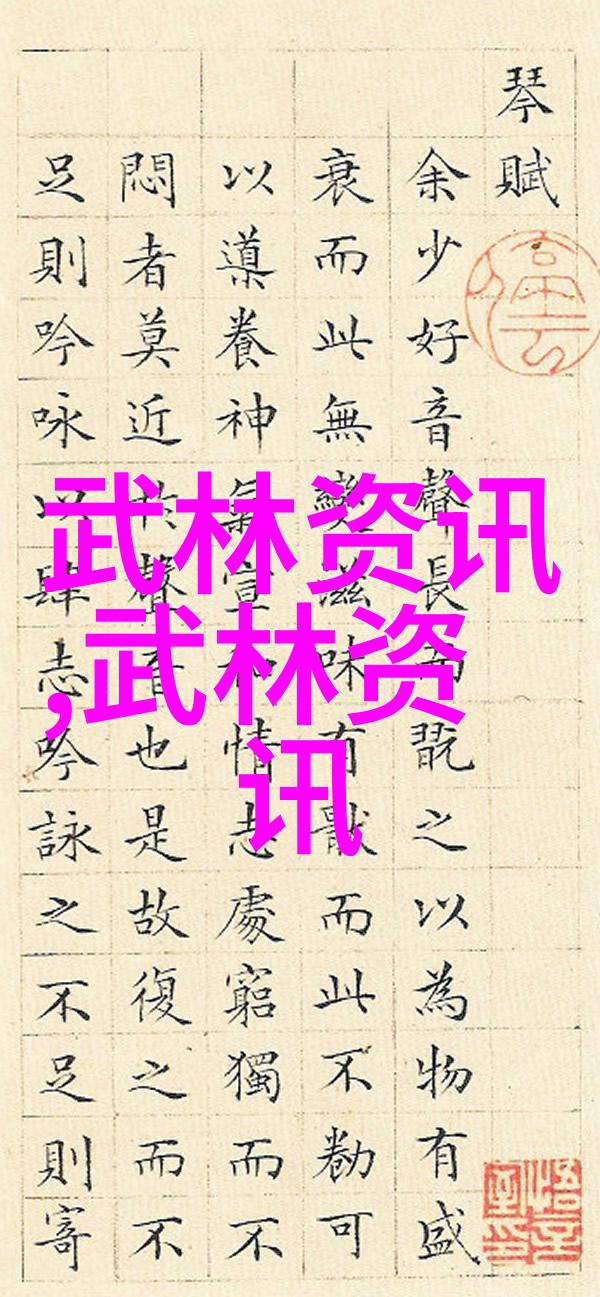 琴賦
余少好音聲長而翫之以為物有盛
衰而此無變滋味有猒而此不勌可
以導養神氣宣和情志處窮獨而不
悶者莫近於聲音也是故復之而不
足則吟咏以肆志吟詠之不足則寄
停云
悟言室印
武林资讯
,武林资
讯